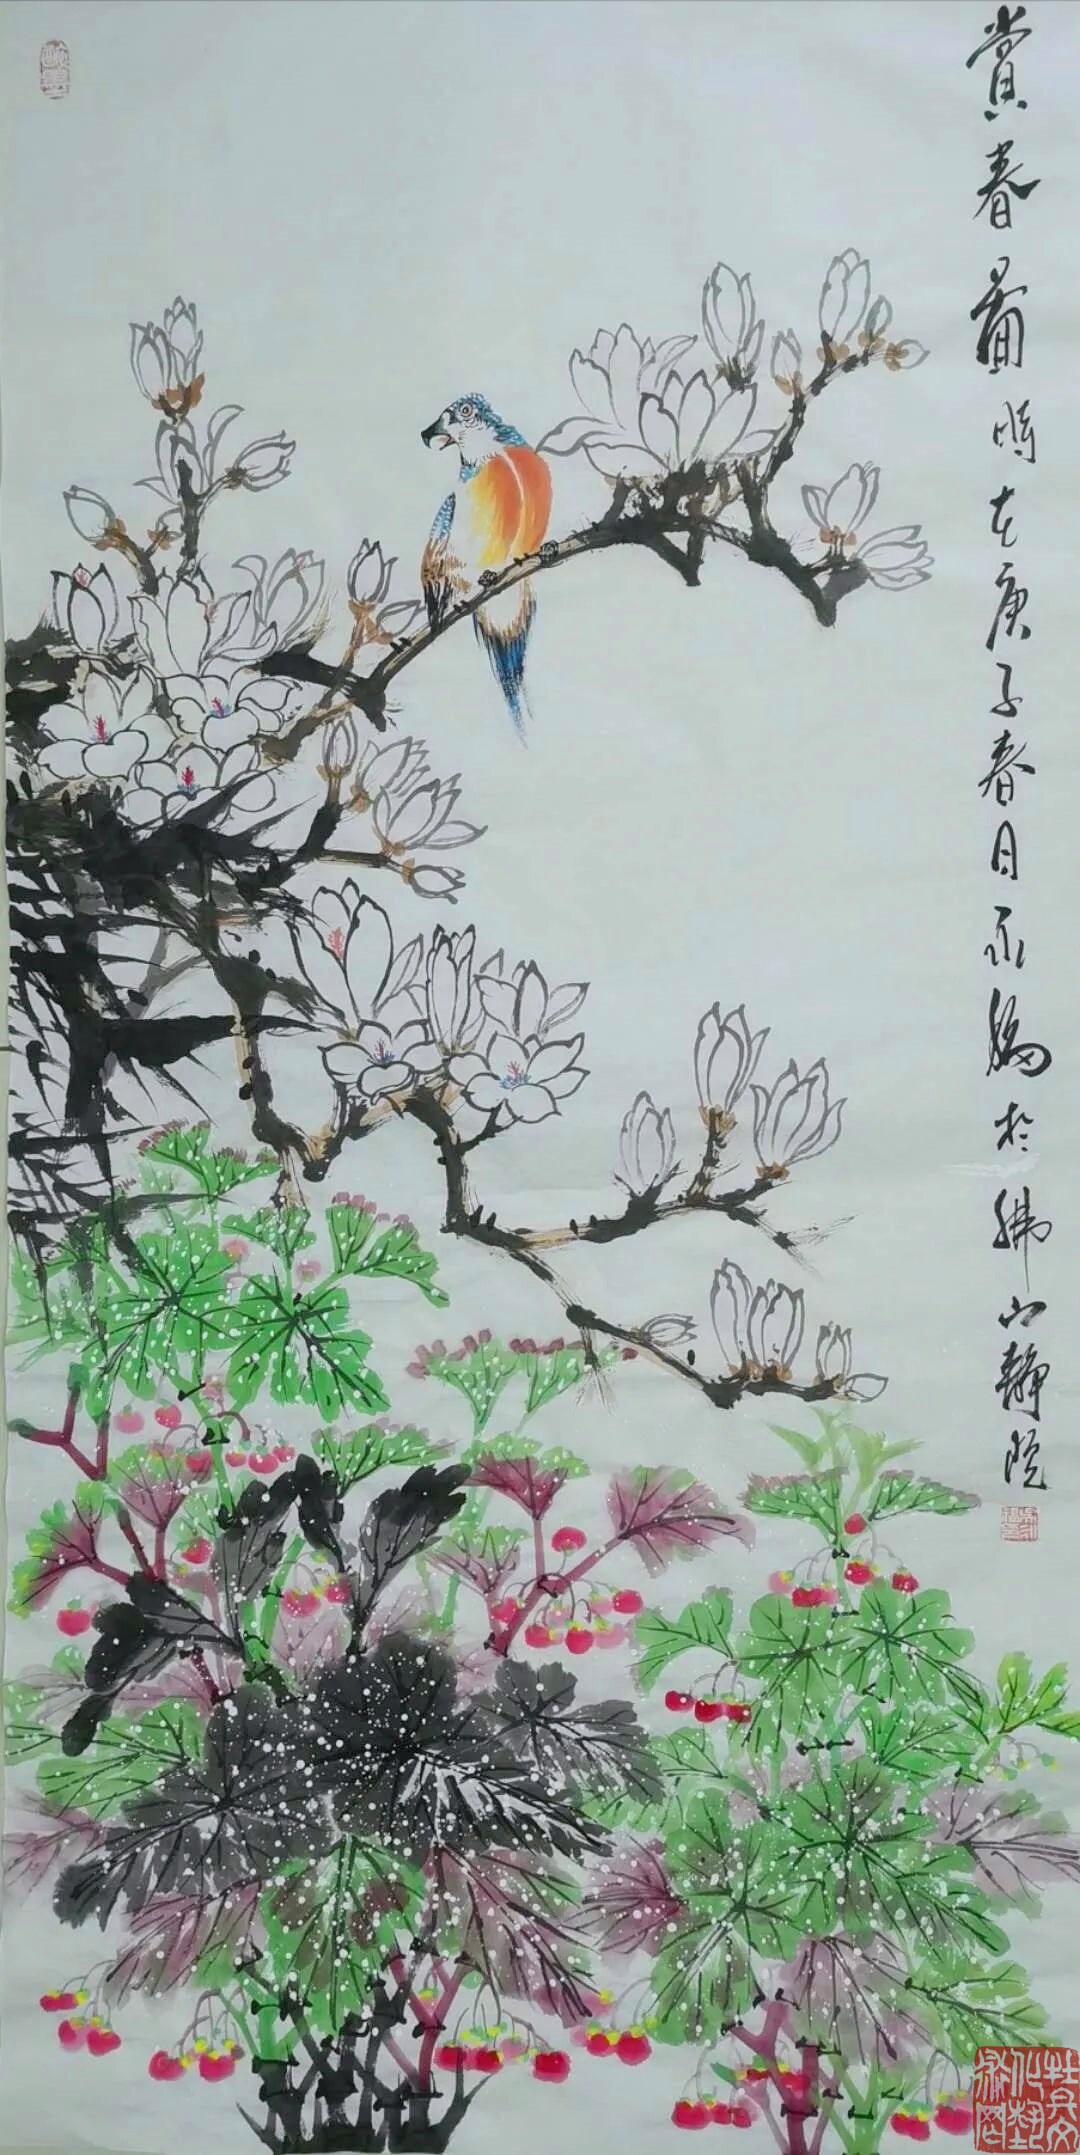 賞春圖時在庚子春月永福於佛山靜院